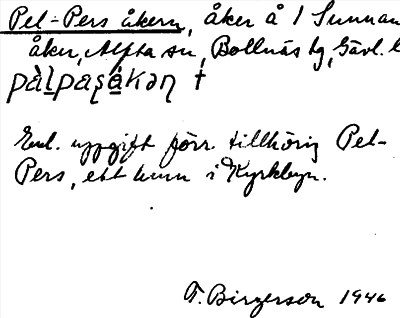 Pel-Pers åkern, åker å 1 Sunnan-
åker, Alfta sn, Bollnäs tg, Gävl. l
pàlpaʂåkəɳ †
Enl. uppgift förr tillhörig Pel-
Pers, ett hem i Kyrkbyn.
F. Birgerson 1946